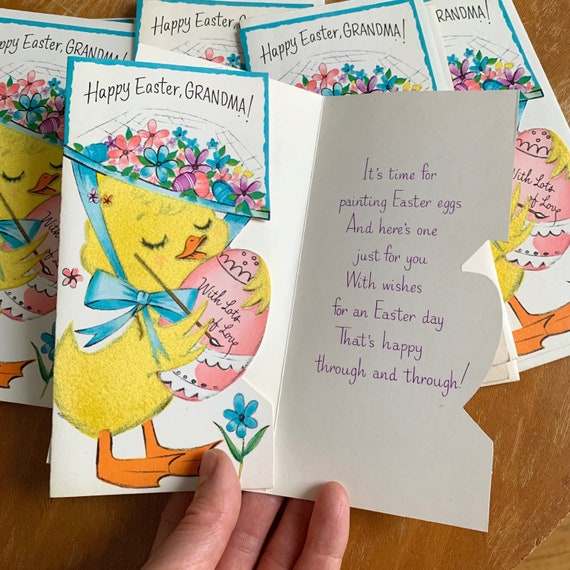 Happy Easter, GRANDMA!
Happy Easter, GRANDMA!
Happy Easter, GRANDMA!
GRANDMA!
Happy Easter, GRANDMA!
With Lots
of Love
It's time for
painting Easter eggs
And here's one
just for you
With wishes
for an Easter day
That's happy
through and through!
With Lots
of Love
With Lots
of Love